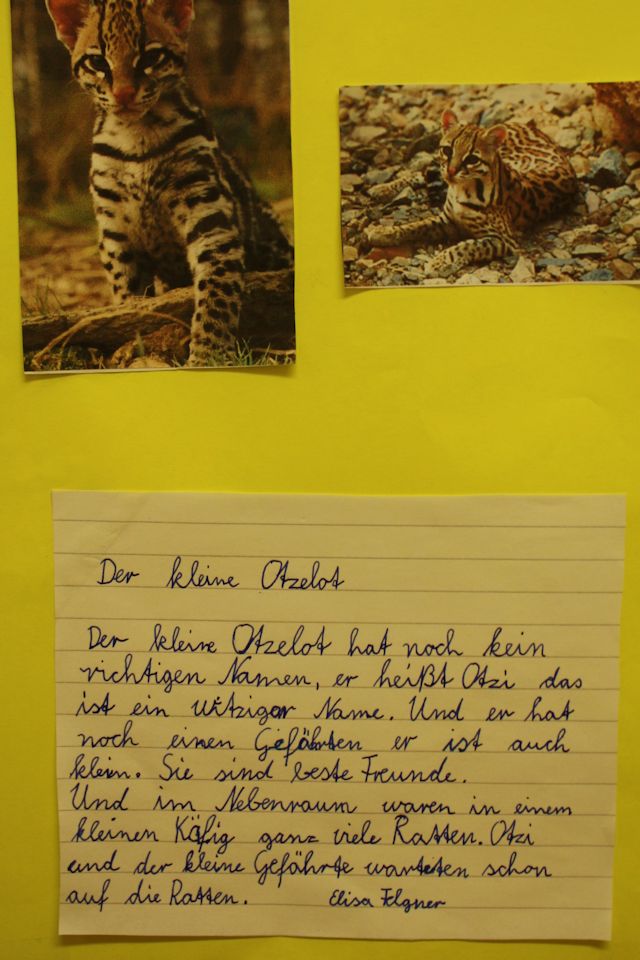 Der kleine Otzelot
Der kleine Otzelot hat noch kein
richtigen Namen, er heißt Otzi das
ist ein witziger Name. Und er hat
noch einen Gefährten er ist auch
klein. Sie sind beste Freunde.
Und im Nebenraum waren in einem
kleinen Käfig ganz viele Ratten. Otzi
und der kleine Gefährte warteten schon
auf die Ratten. Elisa Felgner